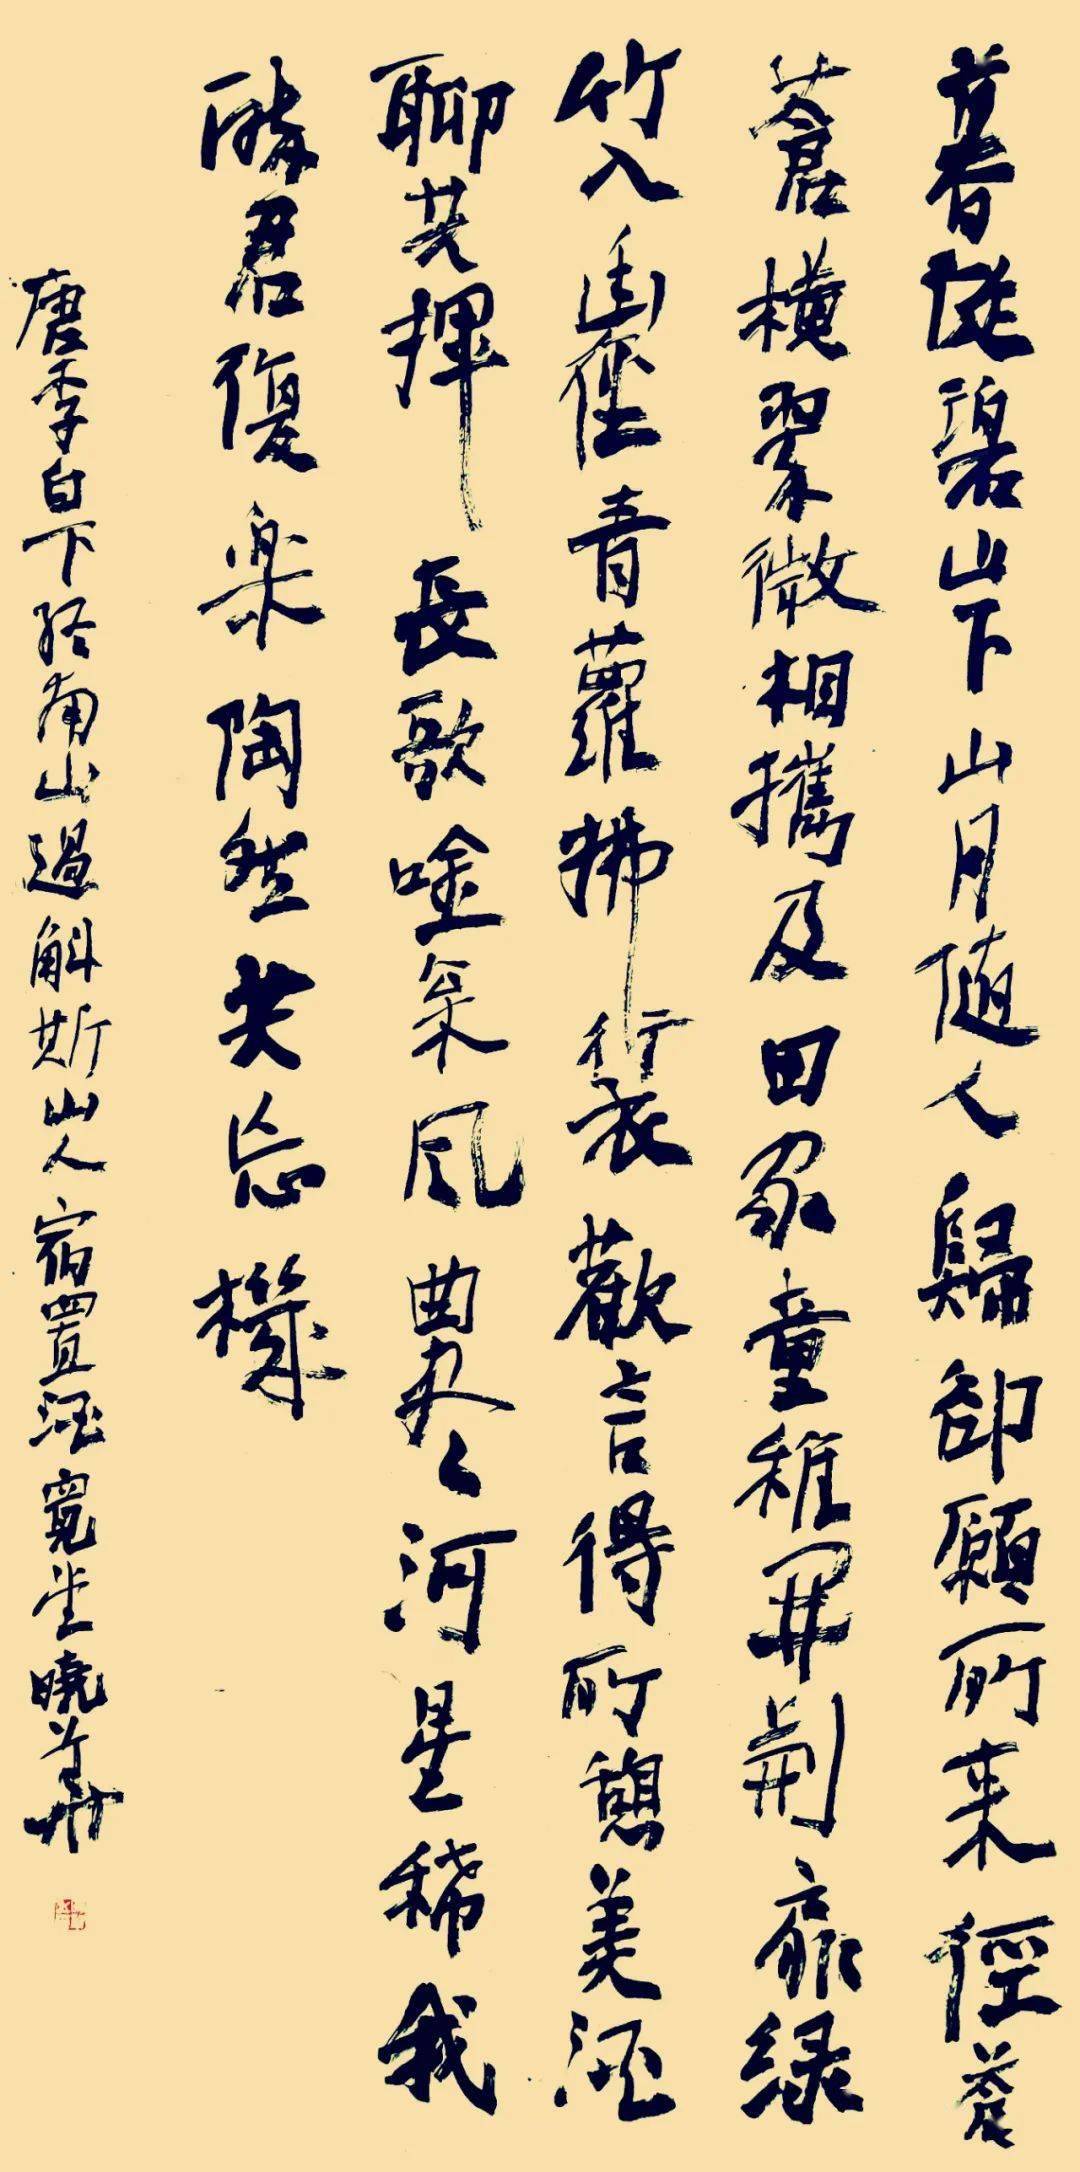 暮從碧山下山月随人歸卻顧所来徑蒼
蒼横翠微相攜及田家童稚開荆扉緑
竹入幽徑青蘿拂行衣歡言得所憩美酒
聊共揮長歌唫枀風曲尽河星稀我
醉君復楽陶然共忘機
唐李白下终南山過斛斯山人宿置酒寬堂曉華